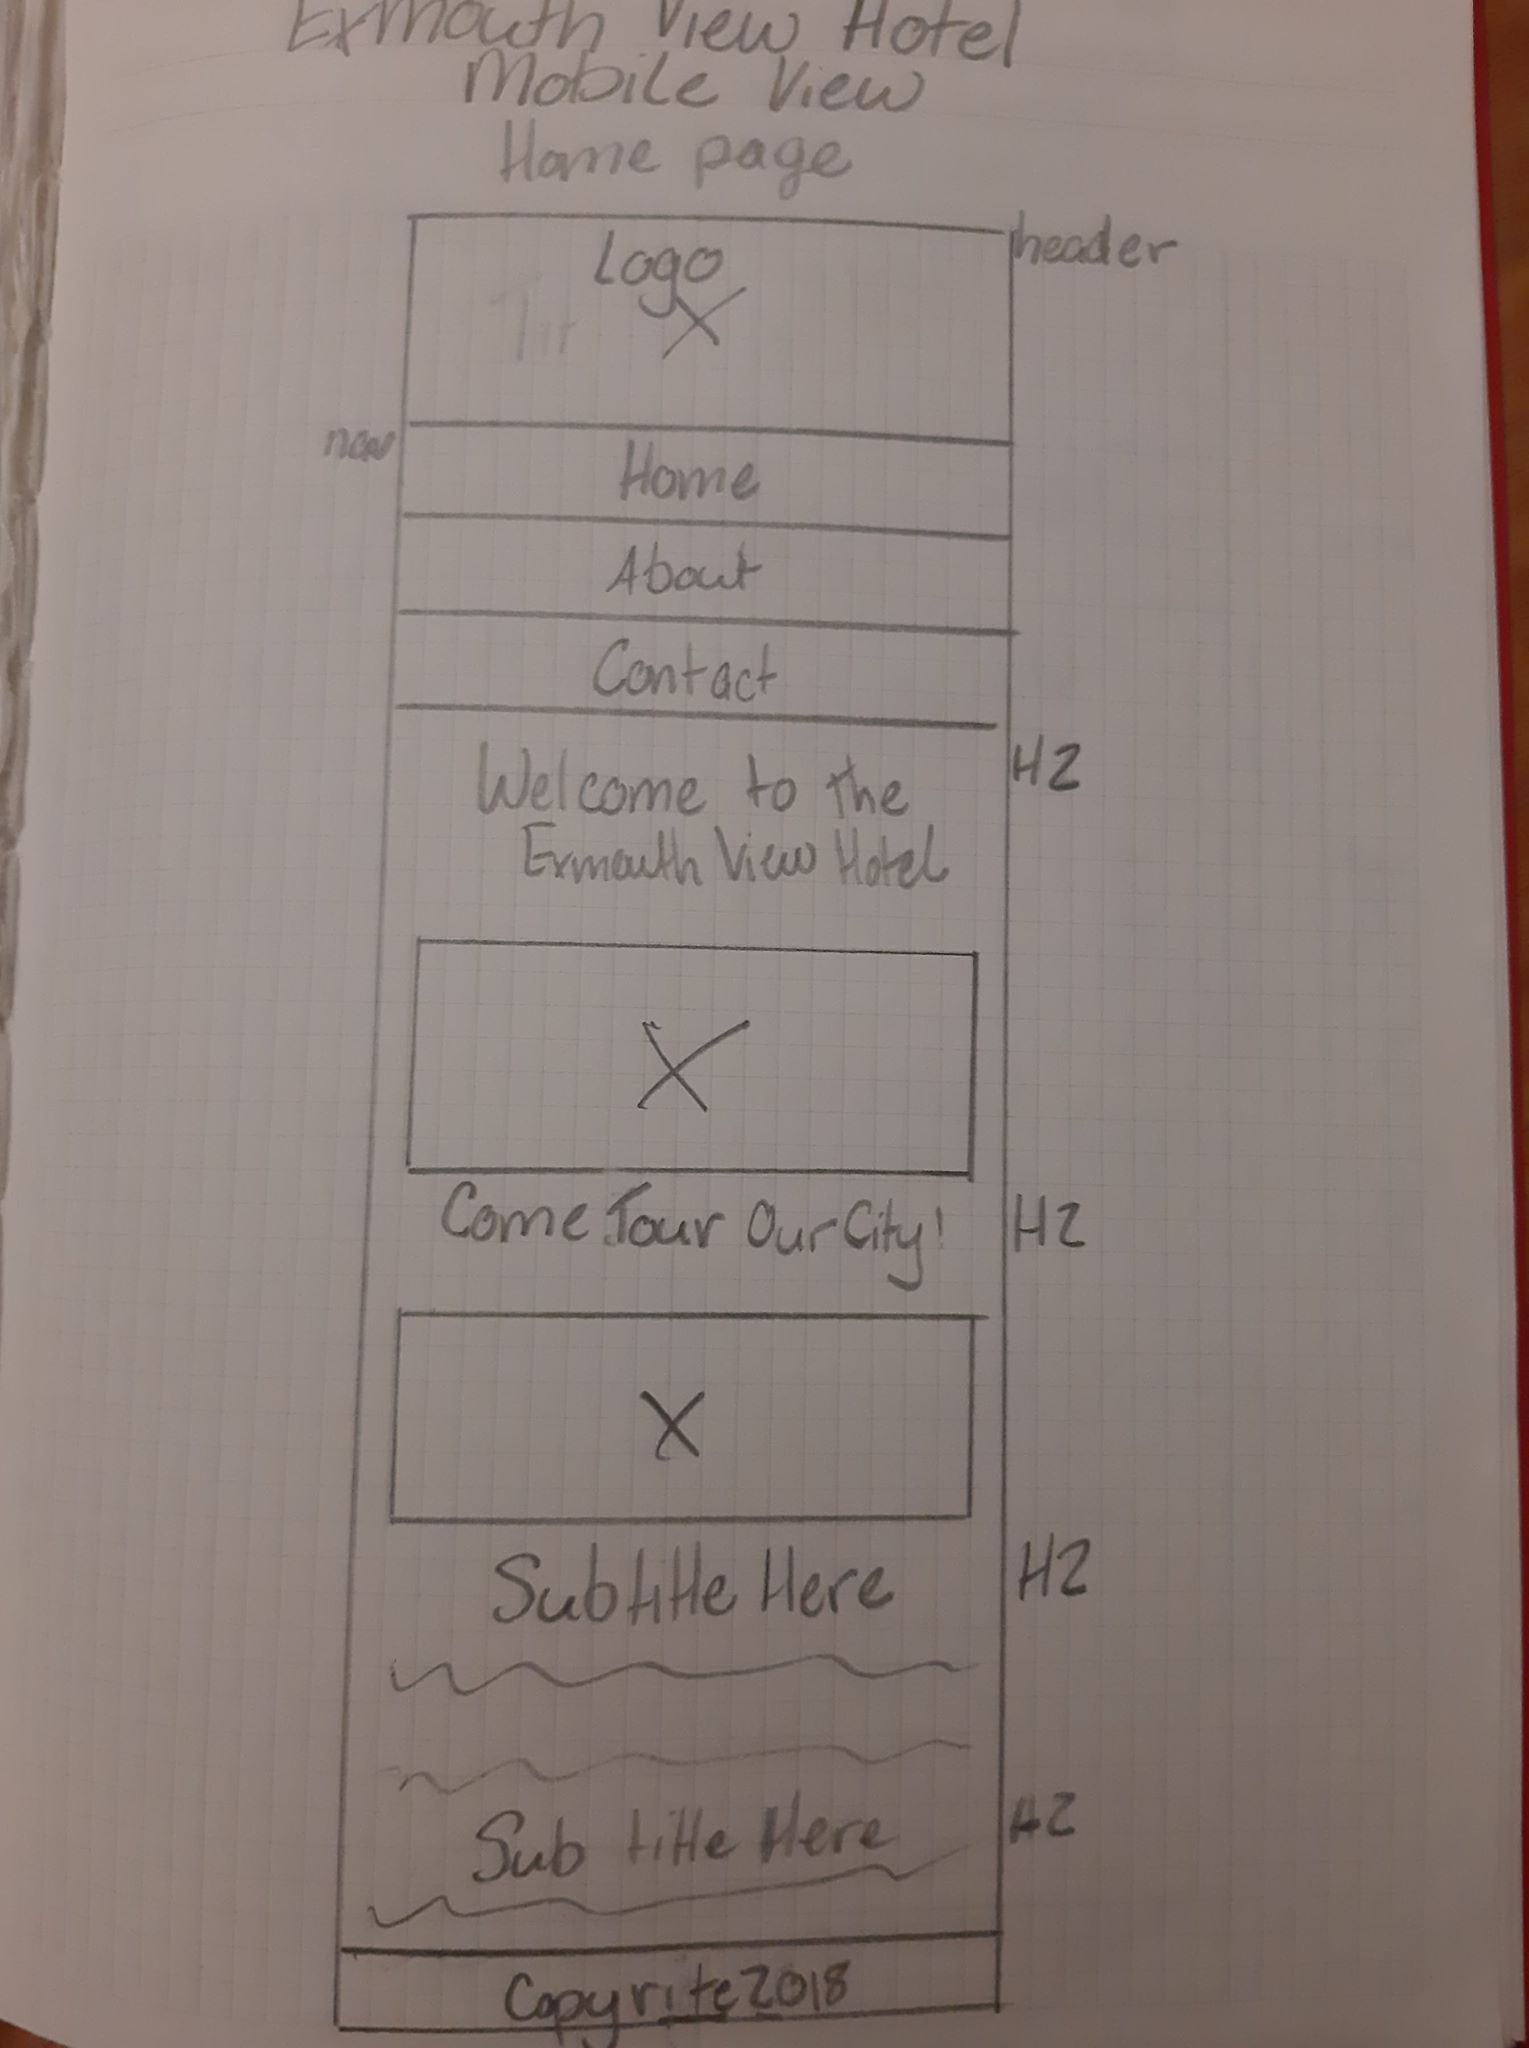 Exmouth View Hotel
Mobile View
Home page
header
Logo
nav
Home
About
Contact
Welcome to the
Exmouth View Hotel
H2
Come Tour Our City!
H2
Subtitle Here
H2
Sub title Here
H2
Copyrite 2018